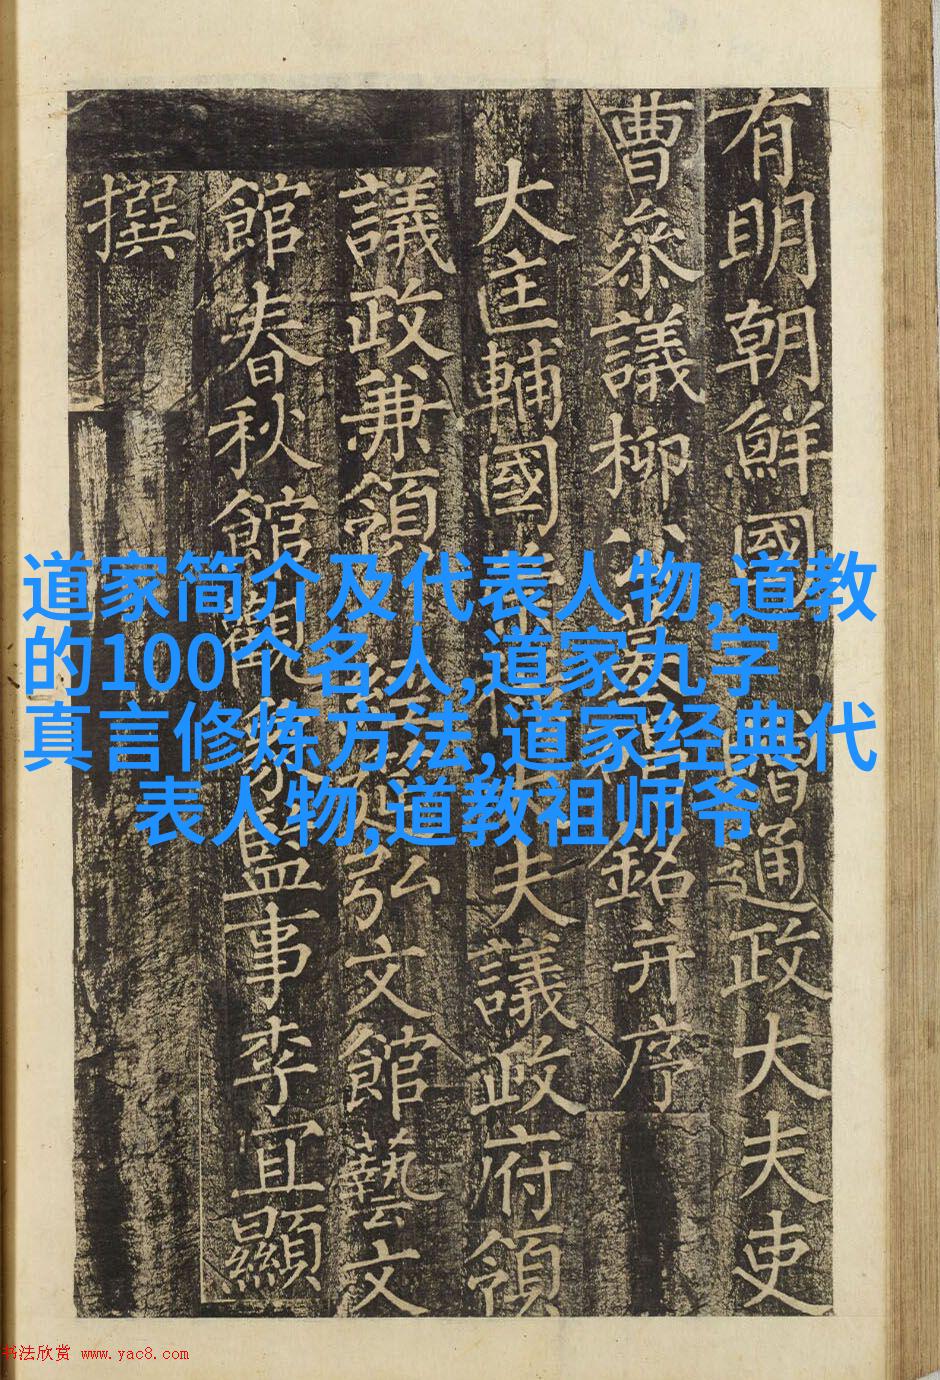 有明朝鮮國贈通政大夫吏
曹叅議柳公墓碣銘并序
大匡輔國崇祿大夫議政府領
議政兼領經筵弘文館藝文
館春秋館觀象監事李宜顯
撰
道家简介及代表人物,道教
的100个名人,道家九字
真言修炼方法,道家经典代
表人物,道教祖师爷
书法欣赏 www.yac8.com